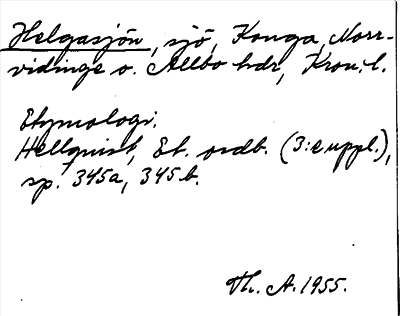 Helgasjön, sjö, Konga, Norr-
vidinge o. Allbo hdr, Kron. l.
Etymologi.
Hellquist, Et. ordb. (3:e uppl.),
sp. 345a, 345b.
Th. A. 1955.